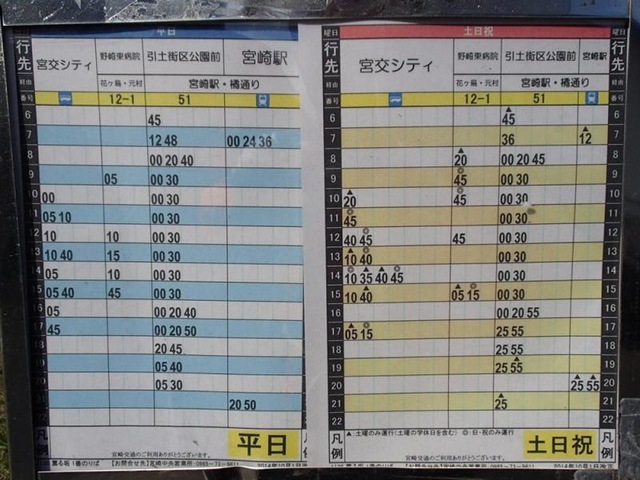 平日
行先 宮交シティ 野崎東病院 引土街区公園前 宮崎駅
経由 花ヶ島・元村 宮崎駅・橘通り
番号 12-1 51
6 45
7 12 48 00 24 36
8 00 20 40
9 05 00 30
10 00 00 30
11 05 10 00 30
12 10 10 00 30
13 10 40 15 00 30
14 05 10 00 30
15 05 40 45 00 30
16 05 00 20 40
17 45 00 20 50
18 20 45
19 05 40
20 05 30
21 20 50
22
凡例
宮崎交通のご利用ありがとうございます。
平日
曜日 土日祝
行先 宮交シティ 野崎東病院 引土街区公園前 宮崎駅
経由 花ヶ島・元村 宮崎駅・橘通り
番号 12-1 51 番号
6 ▲45 6
7 36 ▲12 7
8 ▲20 00 20 45 8
9 ◎45 00 30 9
10 ▲20 ◎45 00 30 10
11 ◎45 00 30 11
12 40 ◎45 45 00 30 12
13 ▲10 ◎40 00 30 13
14 ◎10 ▲35 ▲40 ◎45 00 30 14
15 10 ▲40 ▲05 ◎15 00 30 15
16 00 20 55 16
17 ▲05 ◎15 25 55 17
18 25 55 18
19 25 ▲55 19
20 ▲25 ▲55 20
21 ▲25 21
22 22
凡例 ▲:土曜のみ運行(土曜の学休日を含む) ◎:日・祝のみ運行 凡例
宮崎交通のご利用ありがとうございます。
土日祝
1番のりば 【お問合せ先】宮崎中央営業所
【お問合せ先】宮崎中央営業所 2014年10月1日改正